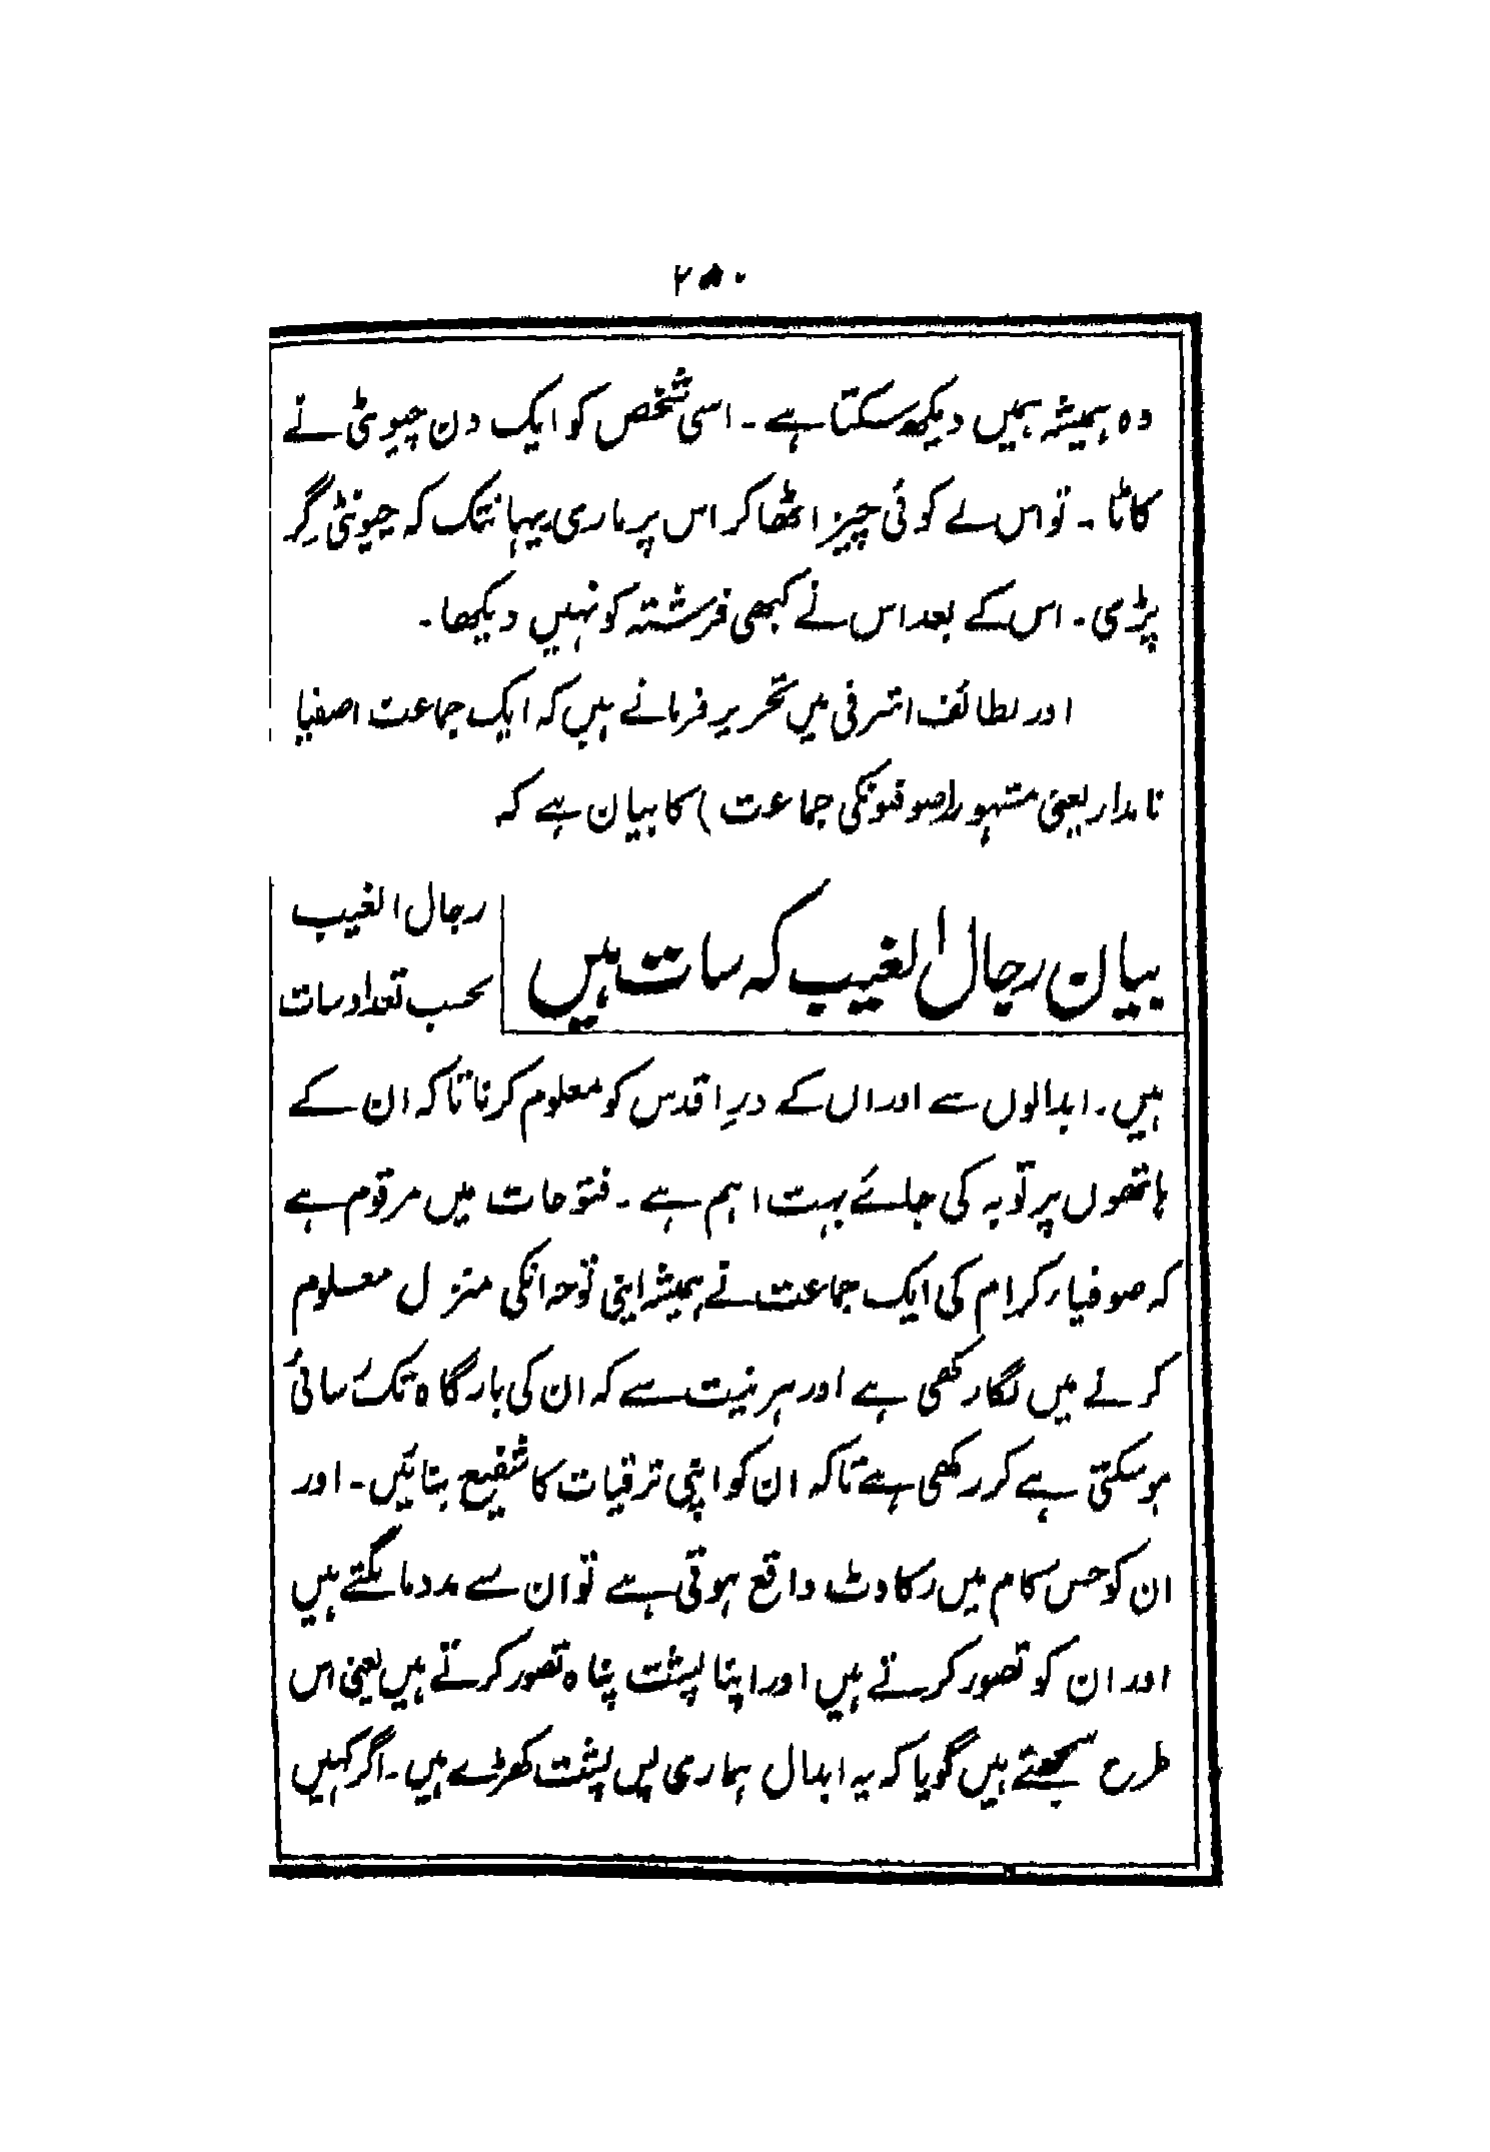 ۲۵۰
وہ ہمیشہ ہمیں دیکھ سکتا ہے ۔ اسی شخص کو ایک دن چیوٹی نے
کاٹا ۔ تو اس نے کوئی چیز اٹھا کر اس پر ماری یہانتک کہ چیونٹی گِر
پڑی ۔ اس کے بعد اس نے کبھی فرشتہ کو نہیں دیکھا ۔
اور لطائف اشرفی میں تحریر فرمانے ہیں کہ ایک جماعت اصفیا
نامدار یعنی مشہور (صوفونکی جماعت) کا بیان ہے کہ
بیان رجال الغیب کہ سات ہیں
رجال الغیب
بحسب تعداد سات
ہیں ۔ ابدالوں سے اور ان کے درِ اقدس کو معلوم کرنا تا کہ ان کے
ہاتھوں پر توبہ کی جائے بہت اہم ہے ۔ فتوحات میں مرقوم ہے
کہ صوفیاء کرام کی ایک جماعت نے ہمیشہ اپنی توجہ انکی منزل معلوم
کرنے میں لگا رکھی ہے اور ہر نیت سے کہ ان کی بارگاہ تک رسائی
ہو سکتی ہے کر رکھی ہے تا کہ ان کو اپنی ترقیات کا شفیع بنائیں ۔ اور
ان کو جس کام میں رکاوٹ واقع ہوتی ہے تو ان سے مدد مانگتے ہیں
اور ان کو تصور کرتے ہیں اور اپنا پشت پناہ تصور کرتے ہیں یعنی اس
طرح سمجھتے ہیں گویا کہ یہ ابدال ہماری پس پشت کھڑے ہیں ۔ اگر کہیں